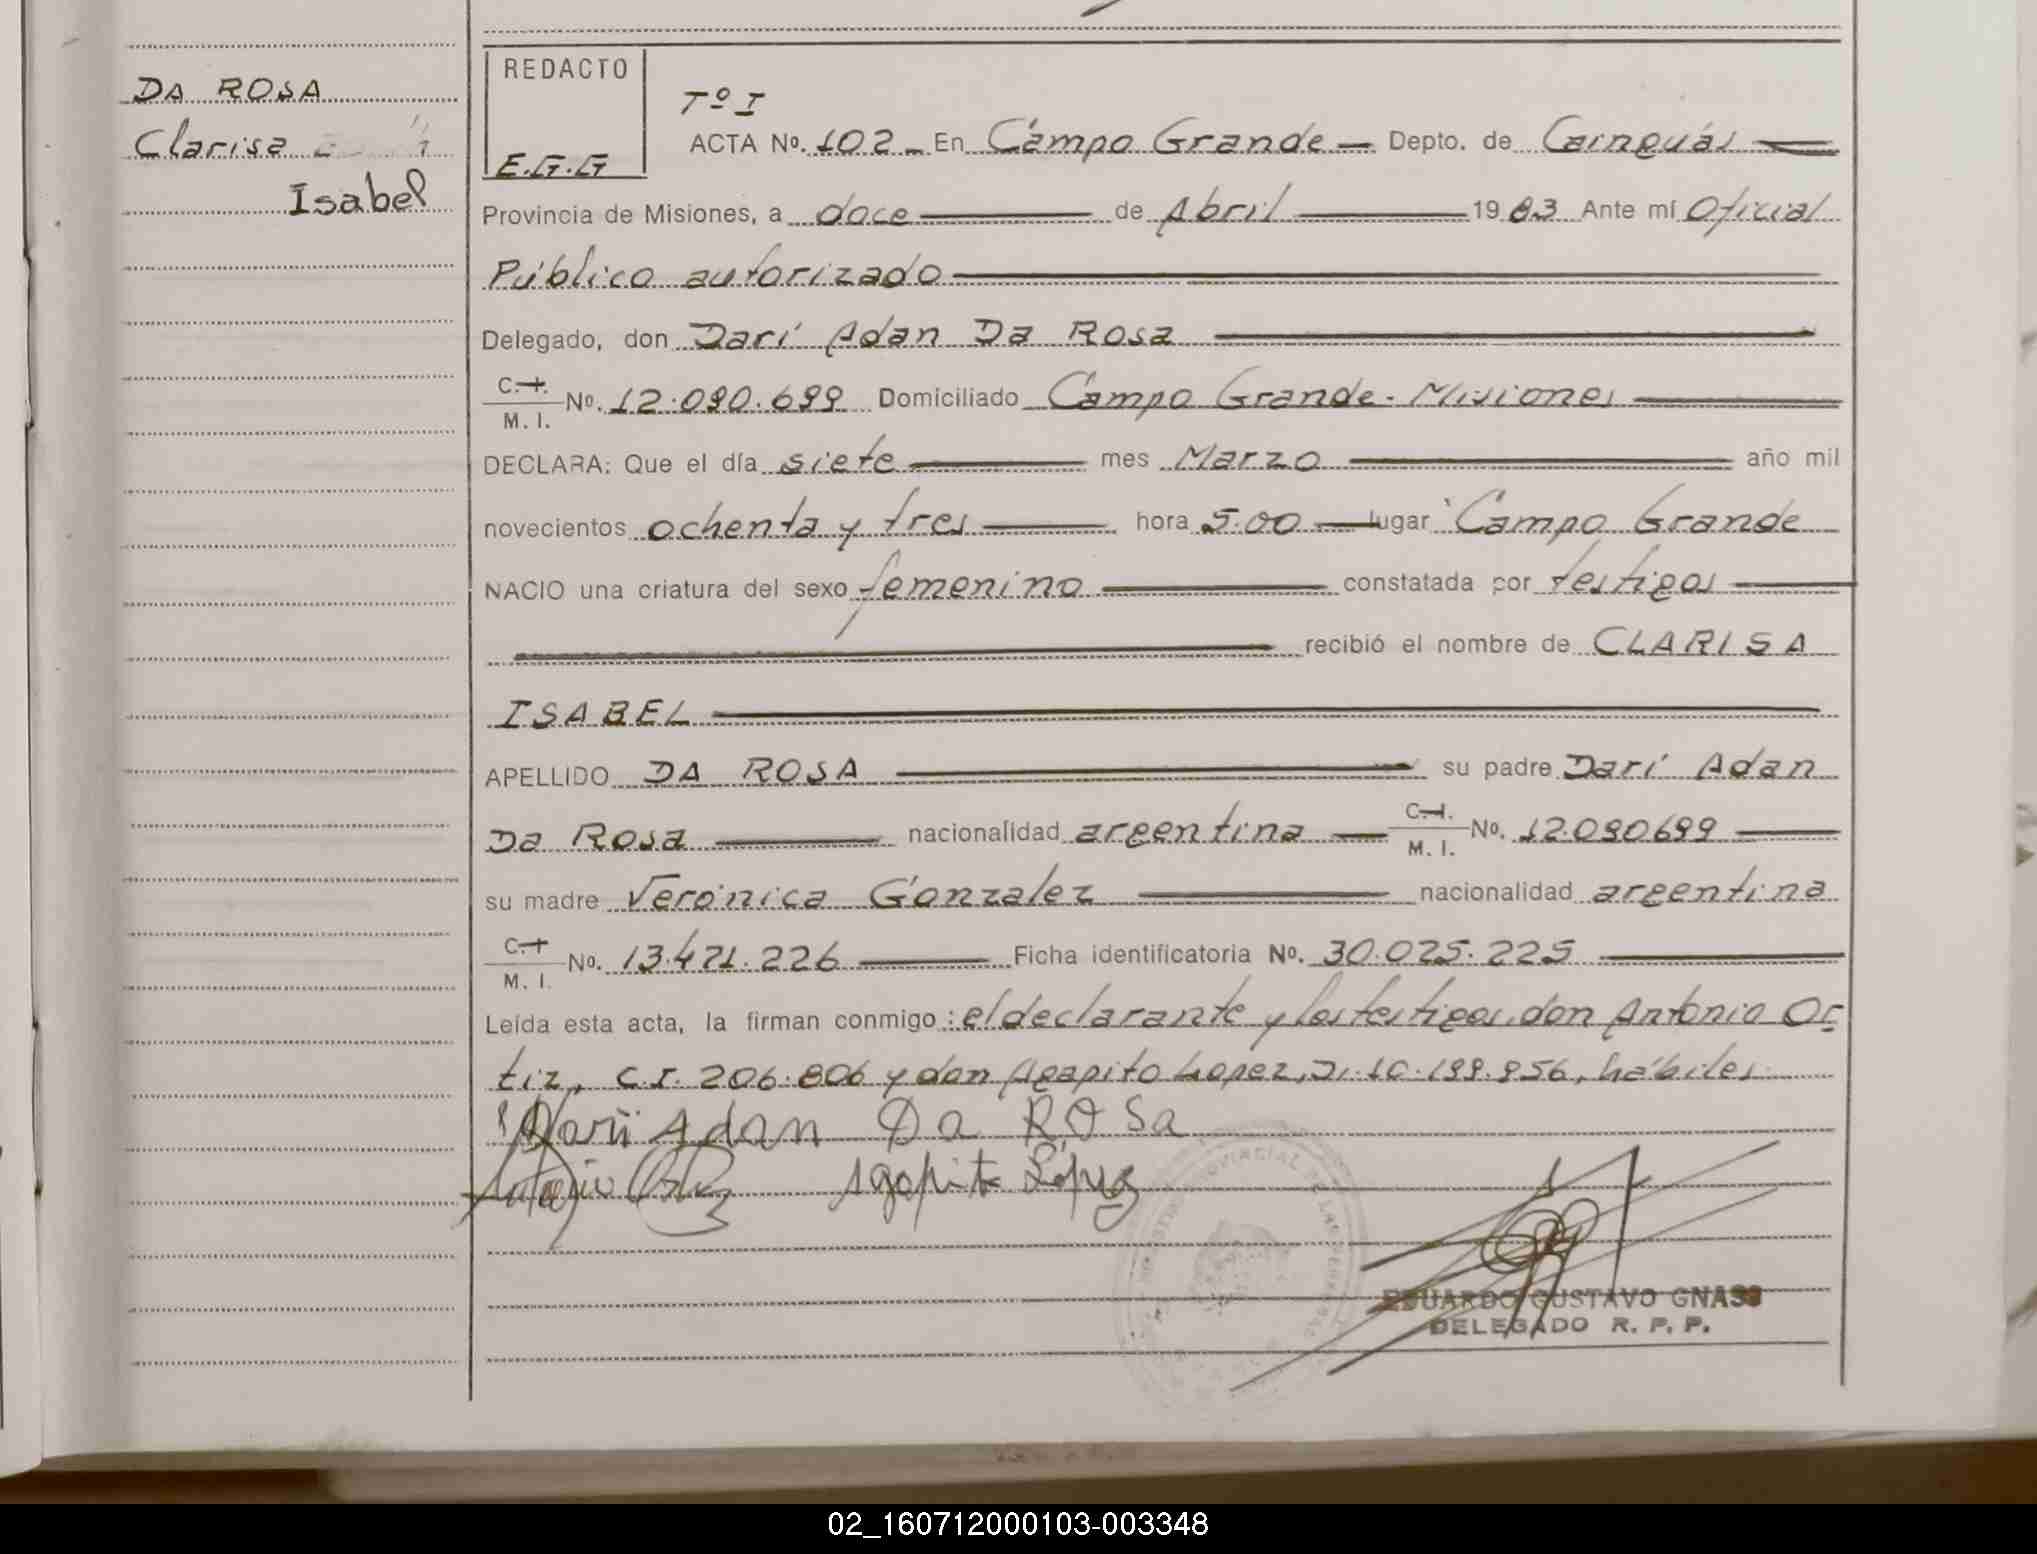 DA ROSA
Clarisa
Isabel
REDACTO
E.G.G
Tº I
ACTA Nº. 102 - En Campo Grande - Depto. de Cainguás
Provincia de Misiones, a doce de Abril 1983 Ante mí Oficial
Público autorizado
Delegado, don Darí Adan Da Rosa
C.I. M. I. Nº. 12.090.699 Domiciliado Campo Grande - Misiones
DECLARA: Que el día siete mes Marzo año mil
novecientos ochenta y tres hora 5.00 lugar Campo Grande
NACIO una criatura del sexo femenino constatada por testigos
recibió el nombre de CLARISA
ISABEL
APELLIDO DA ROSA su padre Darí Adan
Da Rosa nacionalidad argentina C.I. M. I. Nº. 12.090699
su madre Verónica Gonzalez nacionalidad argentina
C.I. M. I. Nº. 13.471.226 Ficha identificatoria Nº. 30.025.225
Leída esta acta, la firman conmigo: el declarante y los testigos, don Antonio Or
tiz, C.I. 206.806 y don Agapito Lopez, 10.199.956, hábiles.
Darii Adan Da ROSa
Antonio Ortiz Agapito López
EDUARDO GUSTAVO GNASS
DELEGADO R. P. P.
02_160712000103-003348